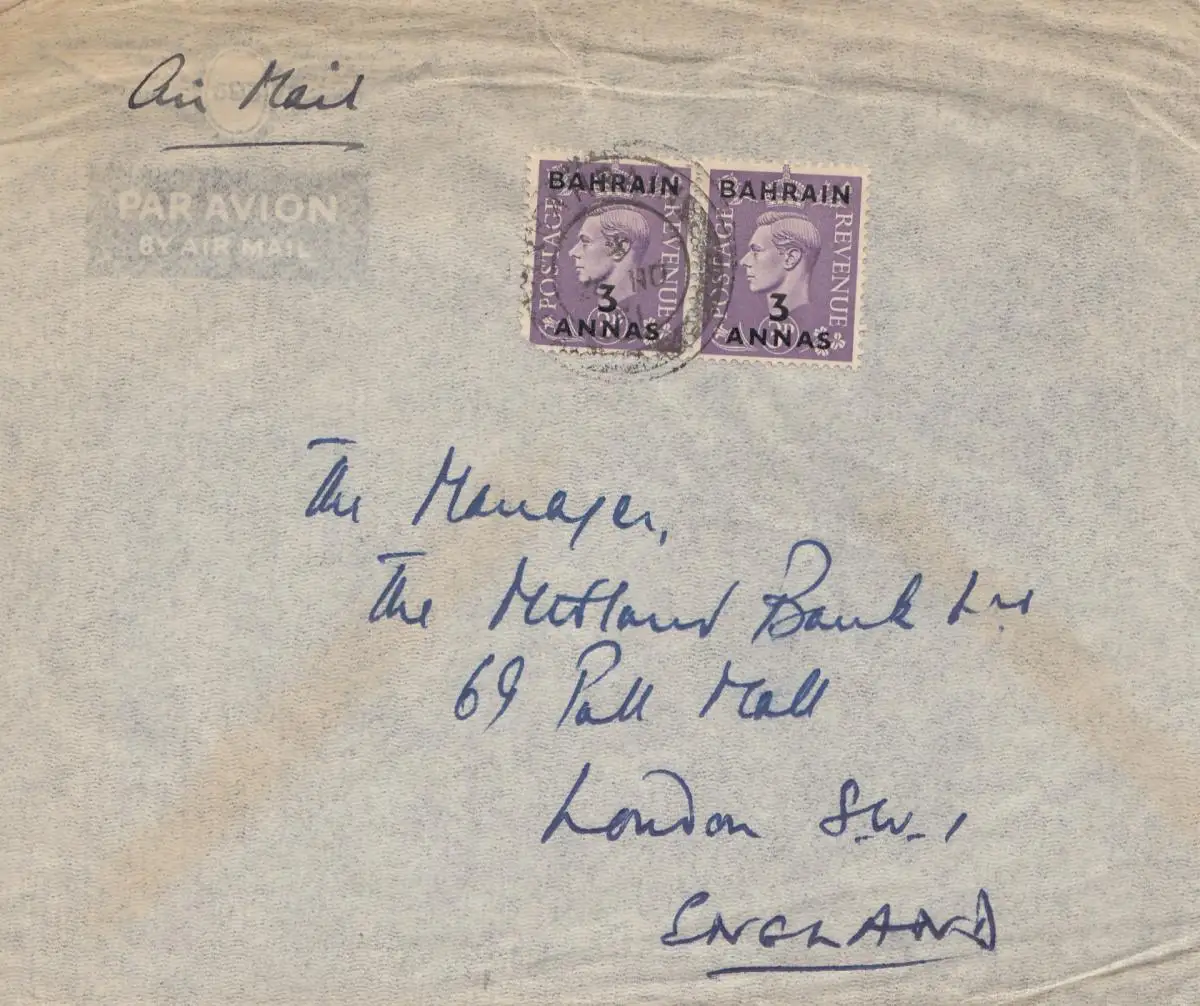 Air Mail
PAR AVION
BY AIR MAIL
BAHRAIN
POSTAGE REVENUE
3
ANNAS
BAHRAIN
POSTAGE REVENUE
3
ANNAS
The Manager,
The Midland Bank Ltd
69 Pall Mall
London S.W.1
ENGLAND